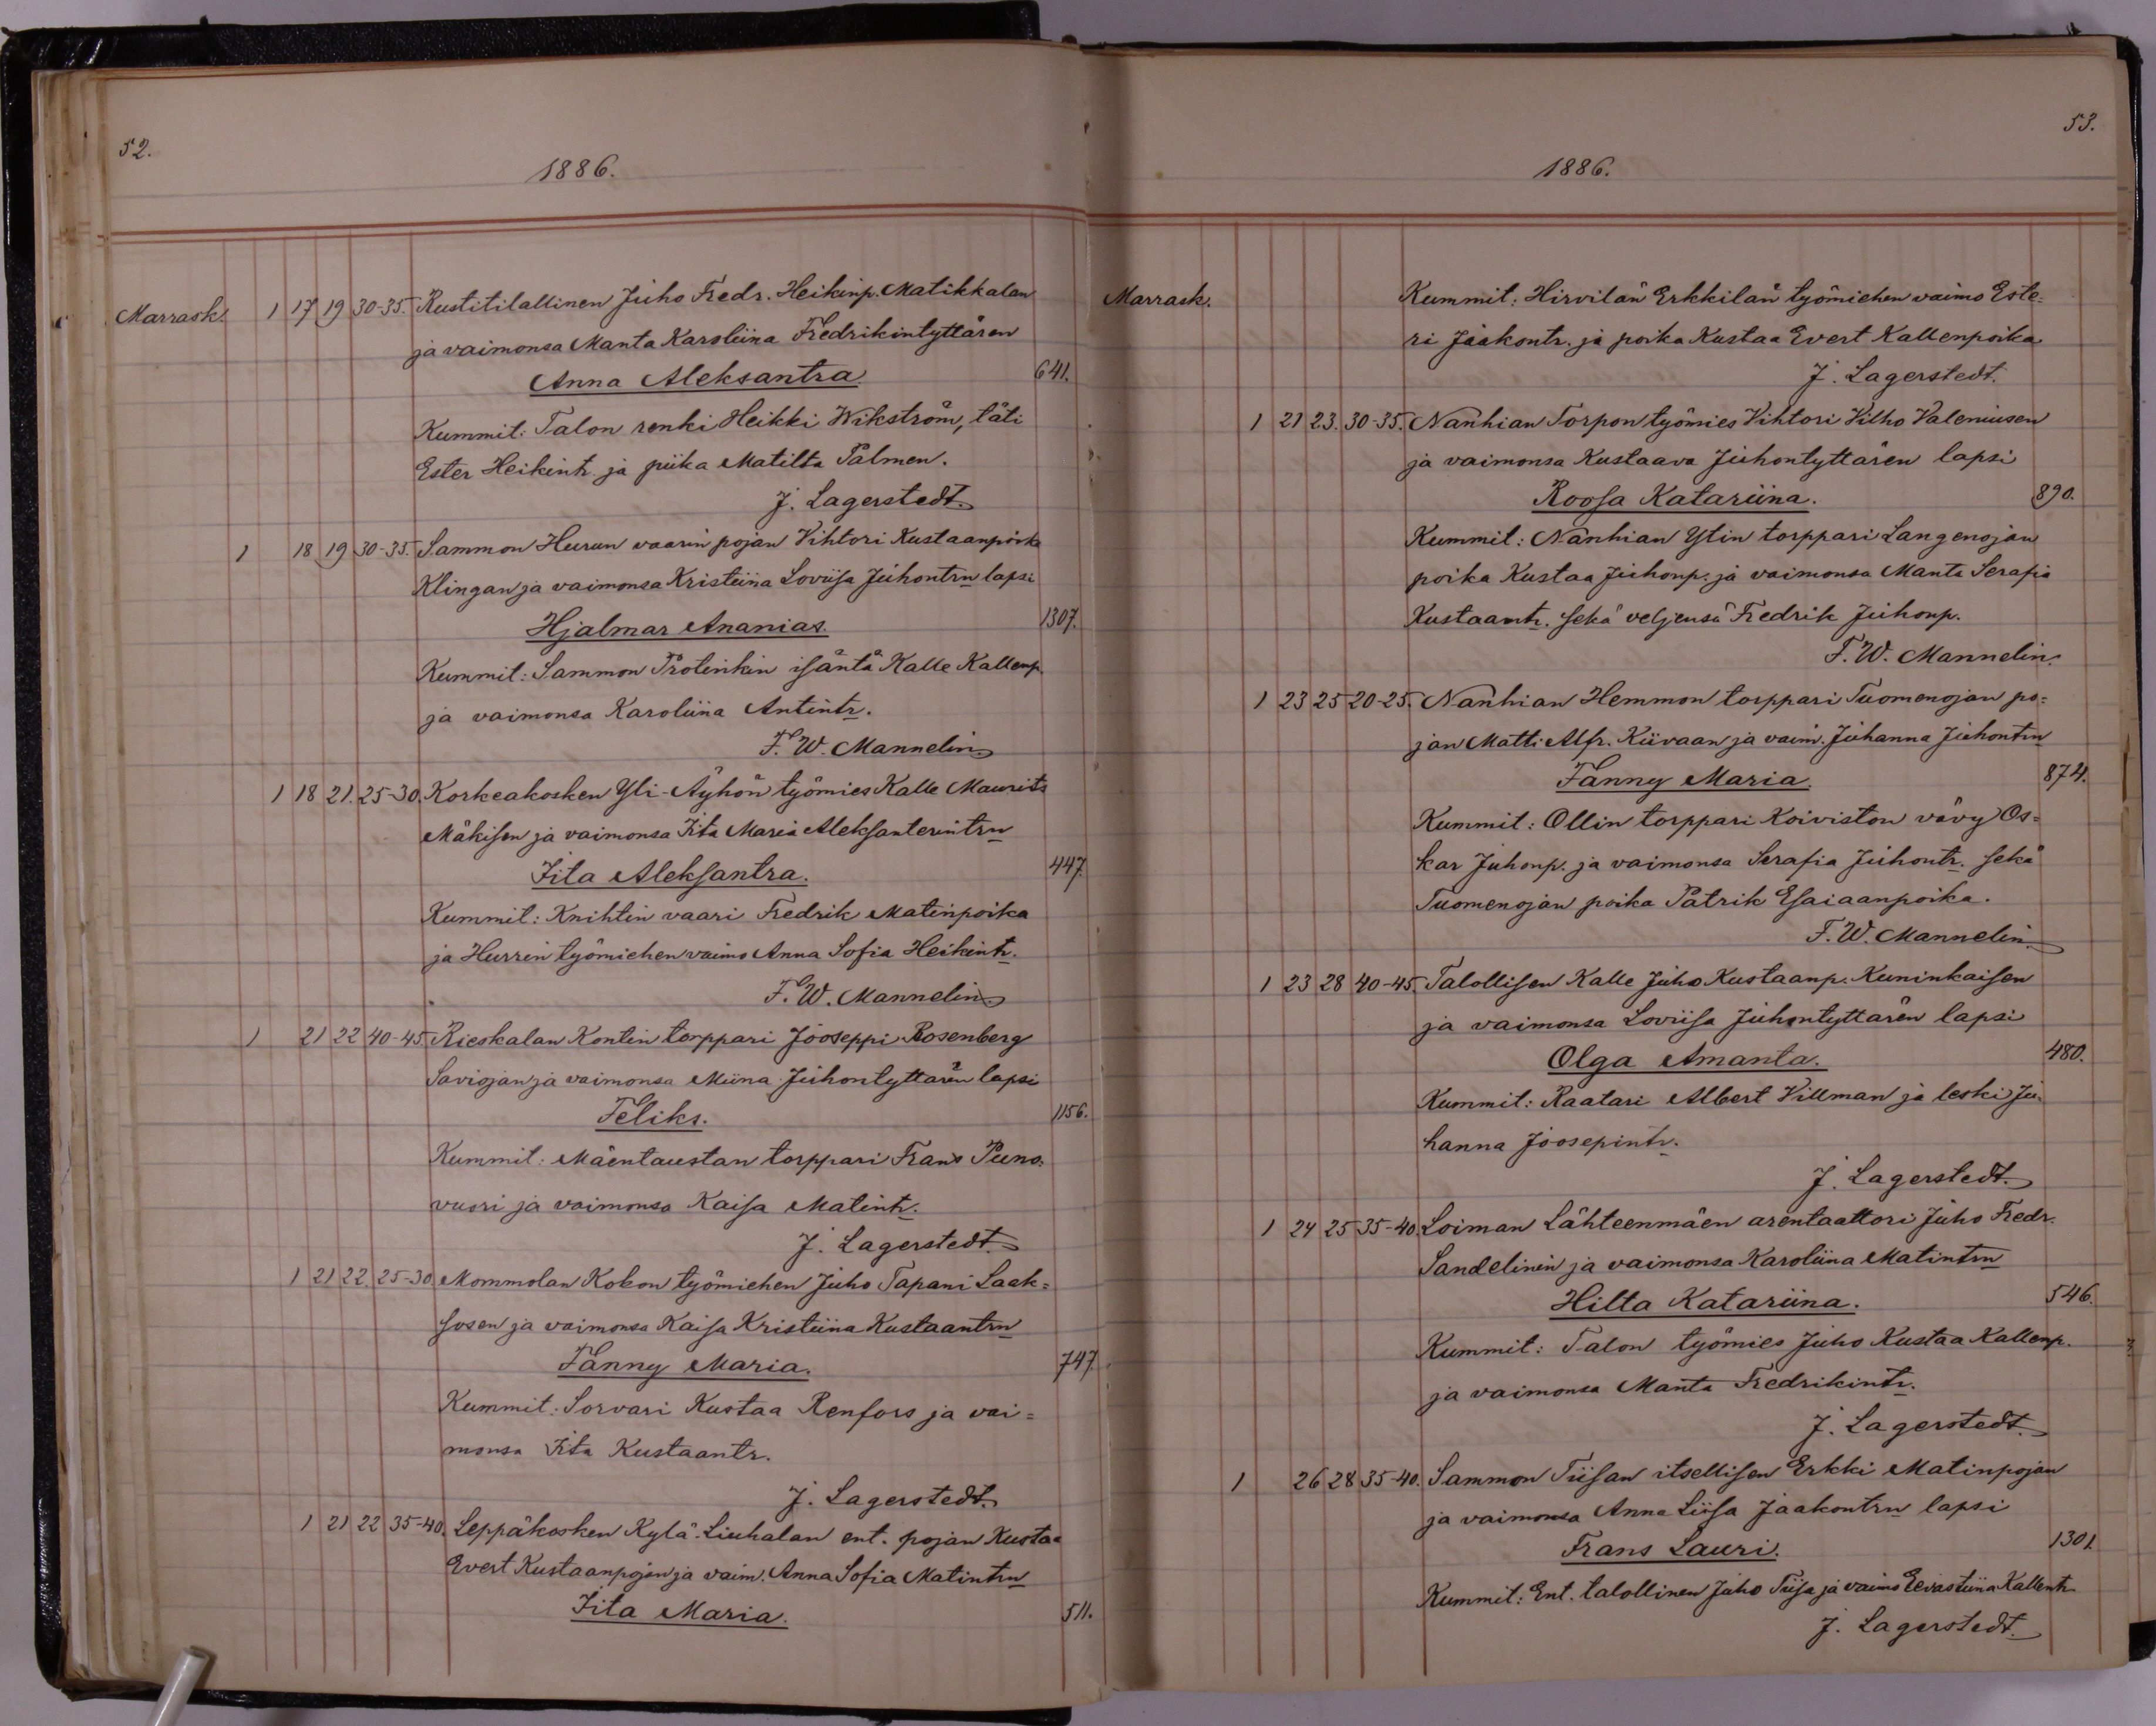 52.
1886.
Marrask. 1 17 19 30-35. Rustitilallinen Juho Fredr. Heikinp. Matikkalan
ja vaimonsa Manta Karoliina Fredrikintyttären
Anna Aleksantra 641.
Kummit: Talon renki Heikki Wikström, täti
Ester Heikint. ja piika Matilta Palmen.
J. Lagerstedt.
1 18 19 30-35. Sammon Hurun vaarin pojan Vihtori Kustaanpoika
Klingan ja vaimonsa Kristiina Loviisa Juhontrn lapsi
Hjalmar Ananias. 1307.
Kummit: Sammon Protinkin isäntä Kalle Kallenp.
ja vaimonsa Karoliina Antintr.
F. W. Mannelin.
1 18 21. 25-30. Korkeakosken Yli-Äyhön työmies Kalle Maurits
Mäkisen ja vaimonsa Iita Maria Aleksanterintrn
Iita Aleksantra. 447.
Kummit: Knihtin vaari Fredrik Matinpoika
ja Hurrin työmiehen vaimo Anna Sofia Heikintr.
F. W. Mannelin.
1 21 22 40-45. Rieskalan Kontin torppari Jooseppi Rosenberg
Saviojan ja vaimonsa Miina Juhontyttären lapsi
Feliks. 1156.
Kummit: Mäentaustan torppari Frans Puno-
vuori ja vaimonsa Kaisa Matintr.
J. Lagerstedt.
1 21 22. 25-30. Mommolan Kokon työmiehen Juho Tapani Laak=
sosen ja vaimonsa Kaisa Kristiina Kustaantrn
Fanny Maria. 747.
Kummit: Sorvari Kustaa Renfors ja vai=
monsa Iita Kustaantr.
J. Lagerstedt.
1 21 22 35-40. Leppäkosken Kylä-Liuhalan ent. pojan Kustaa
Evert Kustaanpojan ja vaim. Anna Sofia Matintrn
Iita Maria. 511.
53.
1886.
Marrask. Kummit: Hirvilän Erkkilän työmiehen vaimo Este=
ri Jaakontr. ja poika Kustaa Evert Kallenpoika
J. Lagerstedt.
1 21 23. 30-35. Nanhian Torpon työmies Vihtori Vilho Valeniusen
ja vaimonsa Kustaava Juhontyttären lapsi
Roosa Katariina. 890.
Kummit: Nanhian Ytin torppari Langenojan
poika Kustaa Juhonp. ja vaimonsa Manta Serafia
Kustaantr. sekä veljensä Fredrik Juhonp.
F. W. Mannelin.
1 23 25 20-25. Nanhian Hemmon torppari Tuomenojan po=
jan Matti Alfr. Kiivaan ja vaim. Juhanna Juhontrn
Fanny Maria. 874.
Kummit: Ollin torppari Koiviston vävy Os=
kar Juhonp. ja vaimonsa Serafia Juhontr. sekä
Tuomenojan poika Patrik Esaiaanpoika.
F. W. Mannelin.
1 23 28 40-45. Talollisen Kalle Juho Kustaanp. Kuninkaisen
ja vaimonsa Loviisa Juhontyttären lapsi
Olga Amanta. 480.
Kummit: Raatari Albert Villman ja leski Ju-
hanna Joosepintr.
J. Lagerstedt.
1 24 25 35-40. Loiman Lähteenmäen arentaattori Juho Fredr.
Sandelinin ja vaimonsa Karoliina Matintrn
Hilta Katariina. 546.
Kummit: Talon työmies Juho Kustaa Kallenp.
ja vaimonsa Manta Fredrikintr.
J. Lagerstedt.
1 26 28 35-40. Sammon Tiisan itsellisen Erkki Matinpojan
ja vaimonsa Anna Liisa Jaakontrn lapsi
Frans Lauri. 1301.
Kummit: Ent. talollinen Juho Tiisa ja vaimo Eevastiina Kallentr.
J. Lagerstedt.